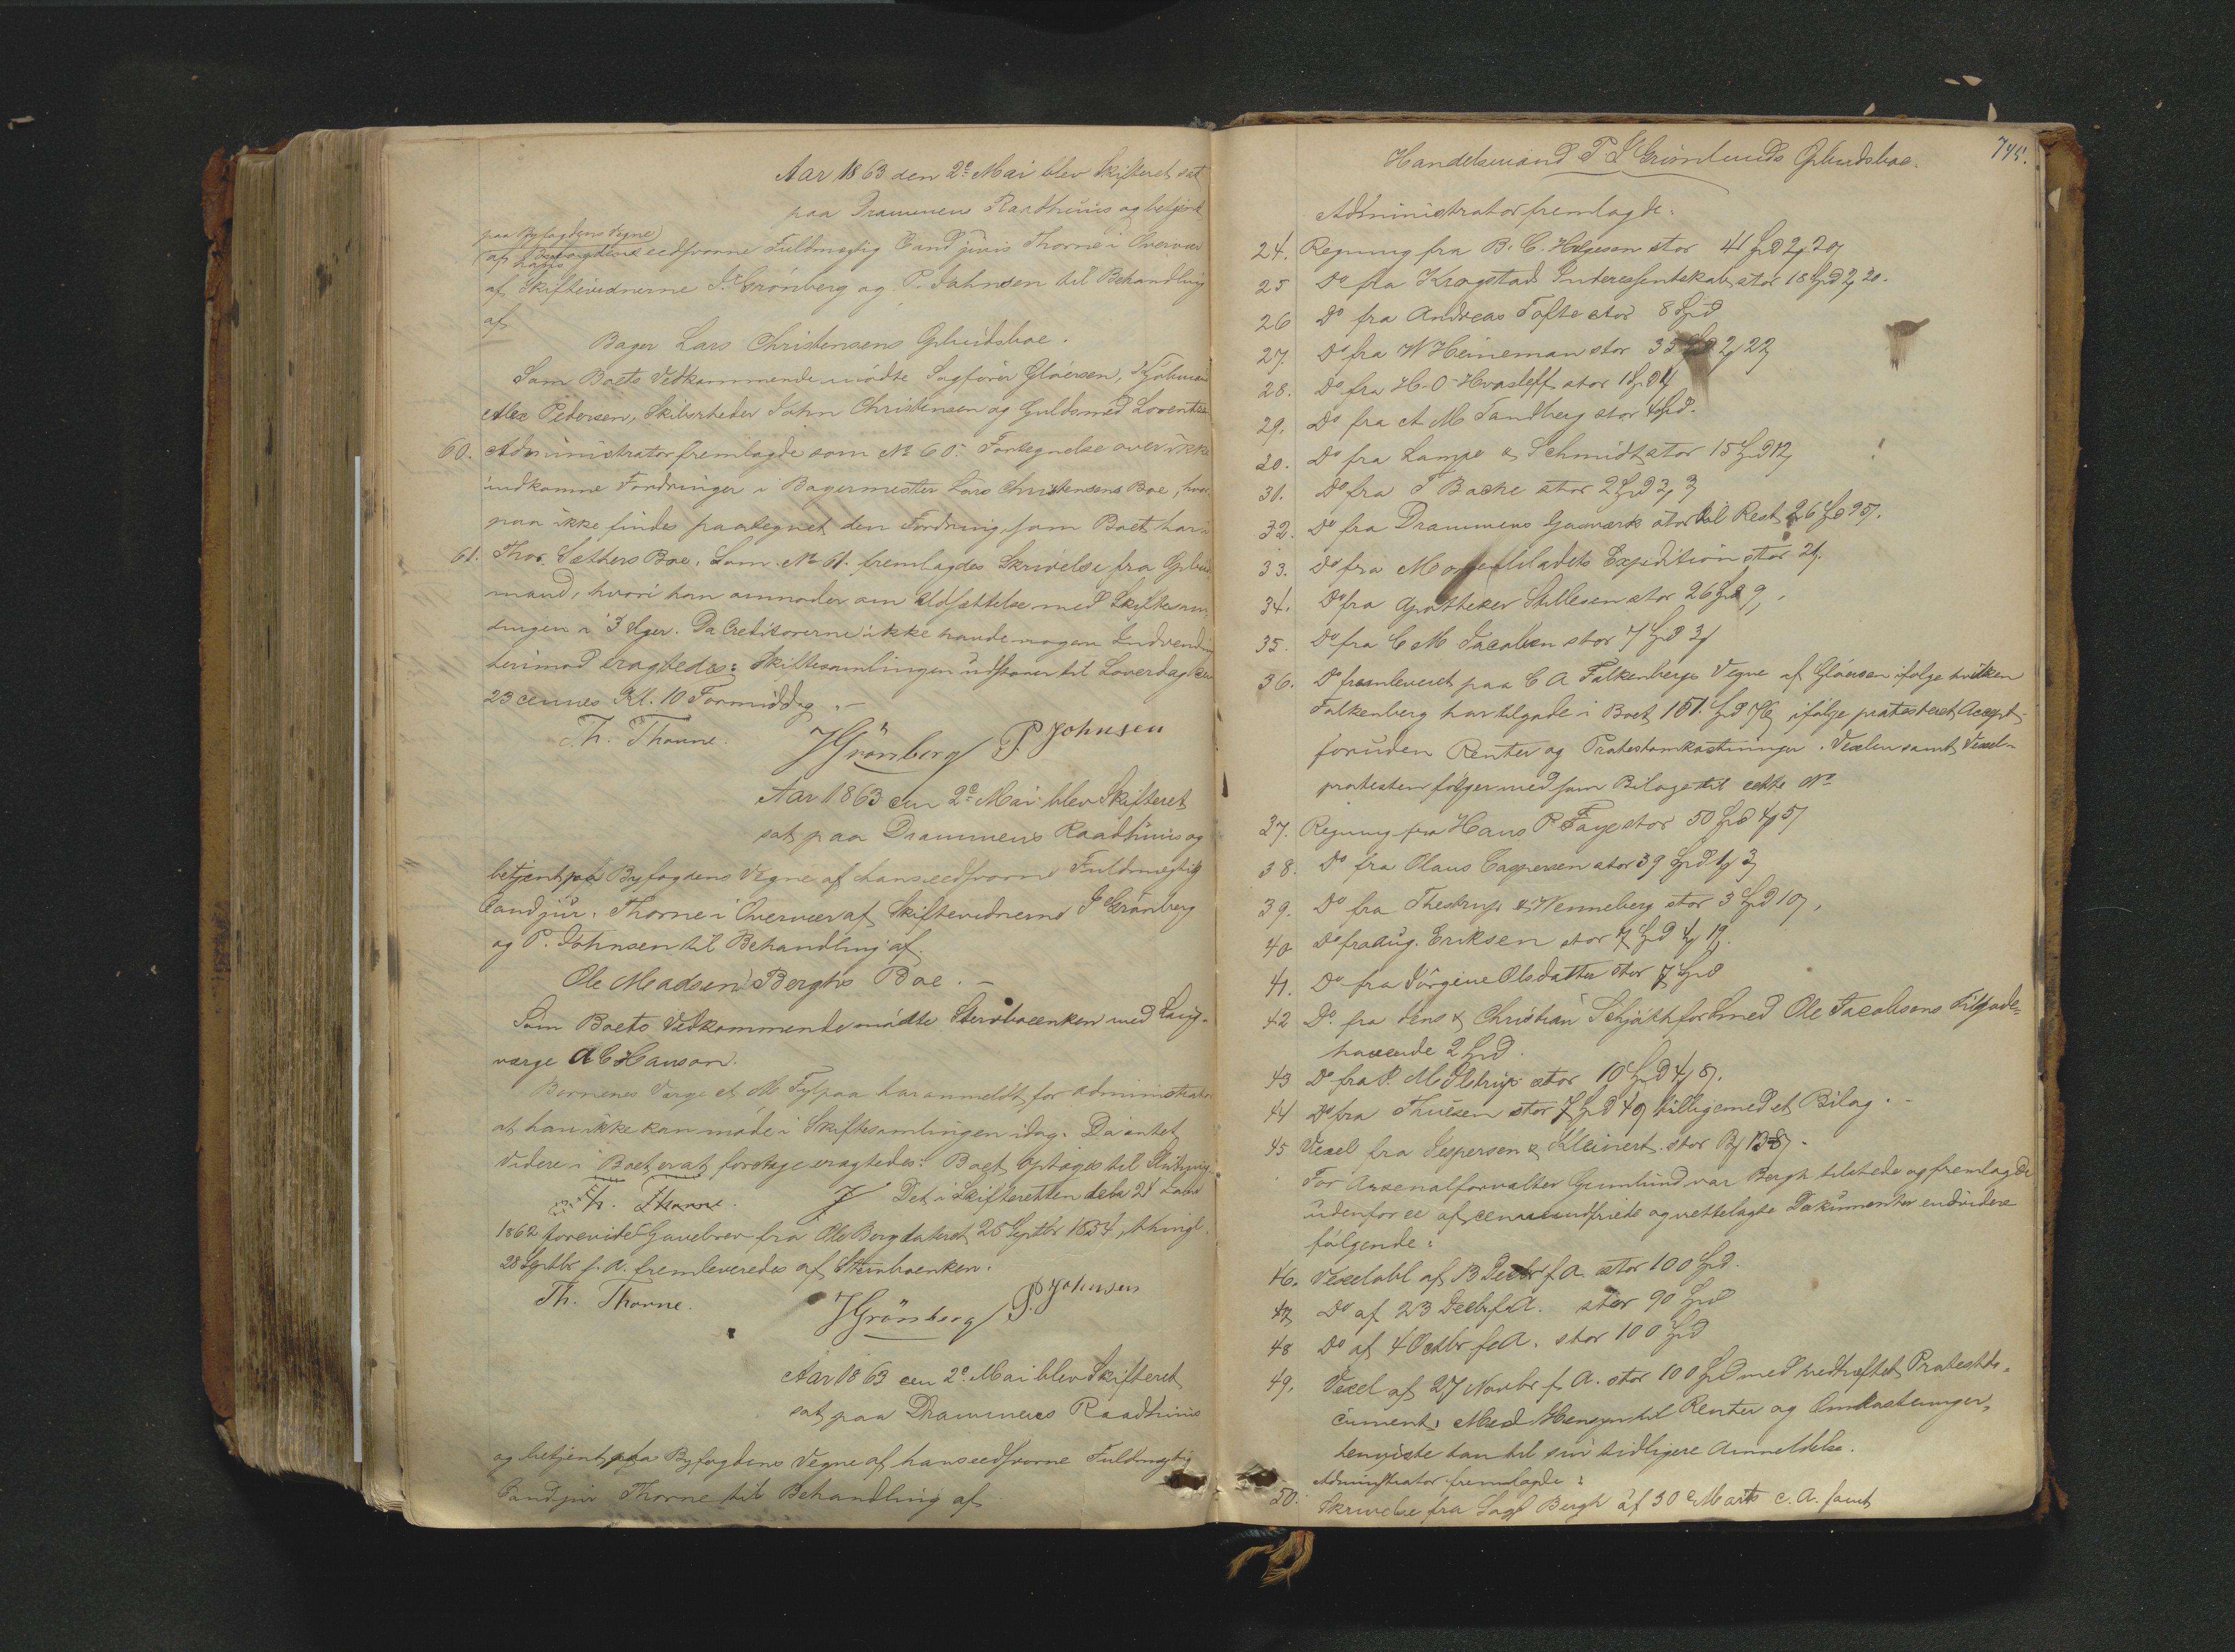 Aar 1863 den 2den Mai blev Skifteret sat
paa Drammens Raadhuus og betjent
paa Byfogdens Vegne
af hans eedsvorne Fuldmægtig Cand juris Thorne i Overvær
af Skiftevidnerne J. Grönberg og P. Johnsen til Behandling
af
Bager Lars Christensens Opbudsboe.
Som Boets Vedkommende mödte Sagförer Glöersen, Kjöbmand
Alex Pedersen, Skibsrheder John Christensen og Guldsmed
60. Administrator fremlagde som No 60: Fortegnelse over ikke
indkomne Fordringer i Bagermester Lars Christensens Boe, hvor
paa ikke findes paategnet den Fordring, som Boet har i
61. Thor Sæthers Boe. Som No 61. fremlagdes Skrivelse fra Opbuds
mand, hvori han anmoder om Udsættelse med Skiftesam
lingen i 3 Uger. Da Creditorerne ikke havde nogen Indvending
herimod eragtedes: Skiftesamlingen udstaaer til Löverdag den
23 dennes Kl. 10 Formiddag.-
Th. Thorne. JGrönberg P. Johnsen
Aar 1863 den 2den Mai blev Skifteret
sat paa Drammens Raadhuus og
betjent paa Byfogdens Vegne af hans eedsvorne Fuldmægtig
Cand jur. Thorne i Overvær af Skiftevidnerne J Grönberg
og P. Johnsen til Behandling af
Ole Madsen Berghs Boe.-
Som Boets Vedkommende mödte Stervboenken med Laug-
værge A C Hanson.
Börnenes Værge A M har anmeldt for Administrator
at han ikke kan möde i Skiftesamlingen idag. Da intet
videre i Boet er at foretage eragtedes: Boet optages til Slutning
Th. Thorne. Det i Skifteretten den 21
1862 foreviste Gavebrev fra Ole Berg dateret 25 Septbr 1854, thingl.
28 Septbr s. A. fremleveredes af Stervboenken.
Th. Thorne. JGrönberg P. Johnsen
Aar 1863 den 2d Mai blev Skifteret
sat paa Drammens Raadhuus
og betjent paa Byfogdens Vegne af hans eedsvorne Fuldmægtig
Cand jur Thorne til Behandling af
745.
Handelsmand T L Grönlunds Opbudsboe.
Administrator fremlagde:
24. Regning fra B. C. Helgesen stor 41 Spd 2
25 Do fra Krogstad Interessentskab stor 18 Spd 2 20.
26 Do fra Andreas Tofte stor 8 Spd
27. Do fra W Heineman stor 35 Spd 2 22
28. Do fra H. O. Hvasleff stor 1 Spd 4
29. Do fra A M Sandberg stor 4 Spd.
30. Do fra Lampe & Schmidt stor 15 Spd 12
31. Do fra T Backe stor 2 Spd 3 3
32. Do fra Drammens Gasværk stor til Rest 26 Spd
33. Do fra Morgenbladets Expedition stor
34. Do fra Apotheker Stillesen stor 26 Spd 9
35. Do fra C M Jacobsen stor 7 Spd 3
36. Do fremleveret paa C A Falkenbergs Vegne af Glöersen ifölge hvilken
Falkenberg har tilgode i Boet 151 Spd ifölge protesteret Accept-
foruden Renter og Protestomkostninger. Vexlen samt Vexel-
protesten fölger med som Bilage til dette No
37. Regning fra Hans P Faye stor 50 Spd 4 5
38. Do fra Olaus Caspersen stor 39 Spd 1 3
39. Do fra Thestrup & Wenneberg stor 3 Spd 10
40 Do fra Aug. Eriksen stor 7 Spd 4 19
41. Do fra Jörgine Olsdatter stor 7 Spd
42 Do. fra Jens & Christian Schjöth for Smed Ole Jacobsens Tilgode-
havende 2 Spd.
43 Do fra P. M Ulstrup stor 10 Spd 4 8.
44 Do fra Thuesen stor 7 Spd 49 tilligemed et Bilag.-
45 Vexel fra Jespersen & Kleinert stor
For Arsenalforvalter Grönlund var Bergh tilstede og fremlagde
udenfor de af dem indfriede og rettelagte Dokumenter endvidere
fölgende:
46. Vexelobl af 13 Decbr f. A. stor 100 Spd.
47 Do af 23 Decbr f. A. stor 90 Spd
48 Do af 4 Octbr f. A. stor 100 Spd
49. Vexel af 27 Novbr f. A. stor 100 Spd med vedhæftet Protestdo-
cument. Med Hensyn til Renter og Omkostninger
henviste han til sin tidligere Anmeldelse.
Administrator fremlagde:
50. Skrivelse fra Sagf Bergh af 30 Marts d. A. samt